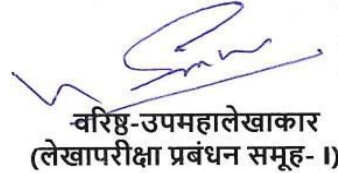 वरिष्ठ-उपमहालेखाकार
(लेखापरीक्षा प्रबंधन समूह- I)